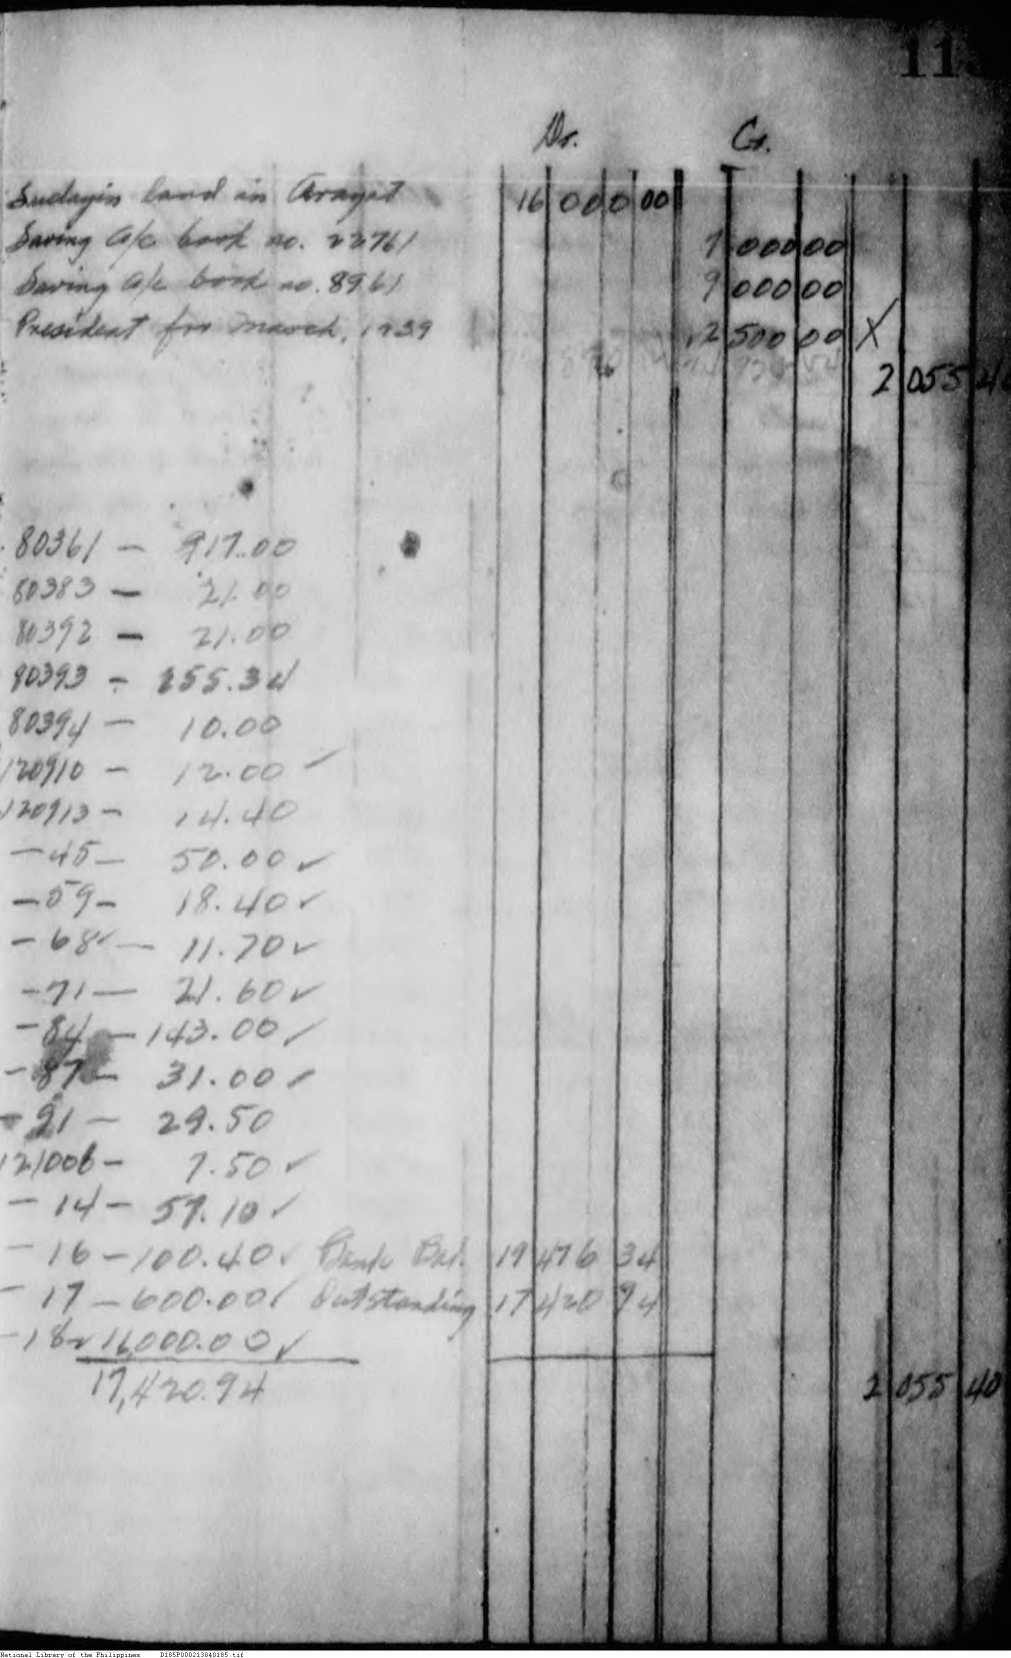 11
Dr. Cr.
land in Arayat 16 000 00
Saving a/c book no. 22761 7 000 00
Saving a/c book no. 8961 9 000 00
President for March, 1939 2 500 00 X
2 055 40
80361 — 917.00
80383 — 21.00
80392 — 21.00
80393 - 255.34
80394 — 10.00
120910 — 12.00 ✓
120913 — 14.40
— 45 — 50.00 ✓
— 59 - 18.40 ✓
— 68 ✓ — 11.70 ✓
— 71 — 21.60 ✓
— 84 — 143.00 ✓
— 87 — 31.00 ✓
— 91 — 29.50
121006 — 7.50 ✓
— 14 — 57.10 ✓
— 16 — 100.40 ✓ Bank Bal. 19 476 34
— 17 — 600.00 ✓ Outstanding 17 420 94
— 18 ✓ 16,000.00 ✓
17,420.94 2 055 40
National Library of the Philippines D185P000213040185.tif